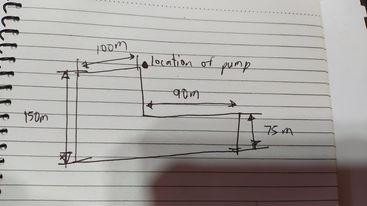 100m
location of pump
90m
150m
75m